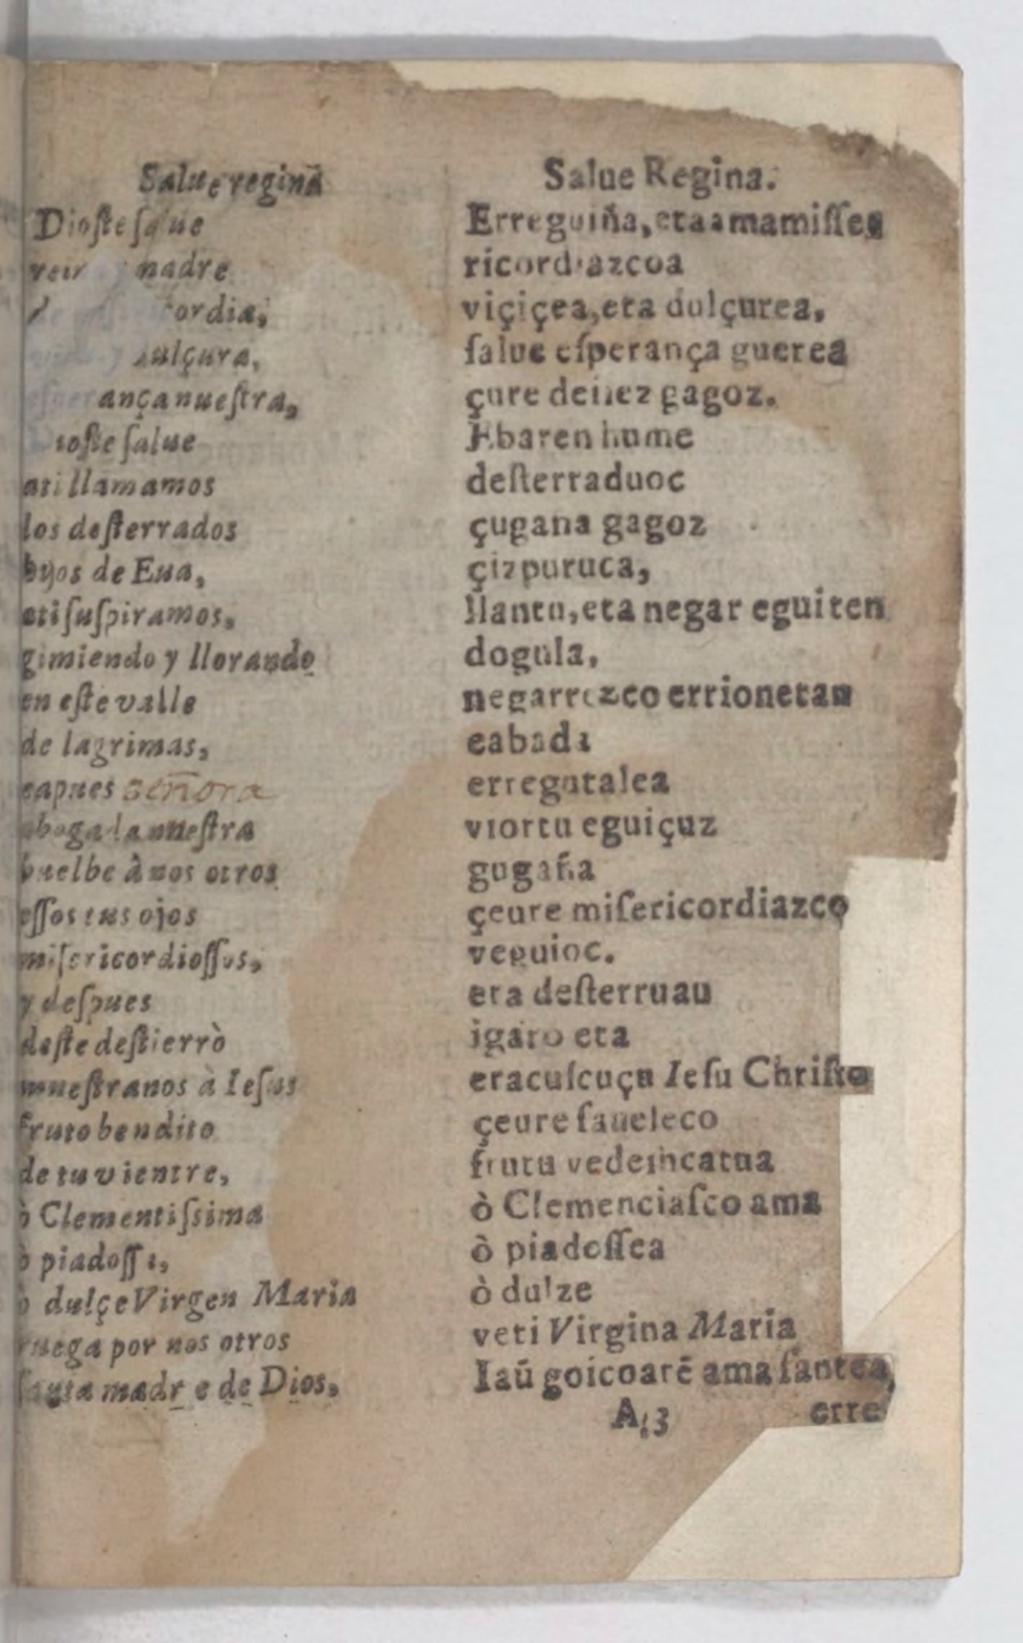 Salue reginã
Dios te salue
madre
de
ordia,
dulçura,
ança nuestra,
ioste salue
ati llamamos
los desterrados
hijos de Eua,
ati suspiramos,
gimiendo y llorando
en este valle
de lagrimas,
eapues señora
abogada nuestra
buelbe à nos otros
essos tus ojos
misericordiossos,
y despues
deste destierrò
muestranos à Iesus
fruto bendito
de tu vientre,
ò Clementissima
ò piadossa,
ò dulçe Virgen Maria
ruega por nos otros
santa madre de Dios,
Salue Regina.
Erreguiña, eta amamisse
ricordiazcoa
viçiçea, eta dulçurea,
salue esperança guerea
çure deiiez gagoz.
Ebaren hume
desterraduoc
çugana gagoz
çizpuruca,
llantu, eta negar eguiten
dogula,
negarrezco errionetan
eabada
erregutalea
viortu eguiçuz
gugaña
çeure misericordiazco
veguioc.
eta desterruau
igaro eta
eracuscuçu Iesu Christo
çeure saueleco
frutu vedeincatua
ò Clemenciasco ama
ò piadossea
ò dulze
veti Virgina Maria
Iaũ goicoarẽ ama santea,
A 3 erre